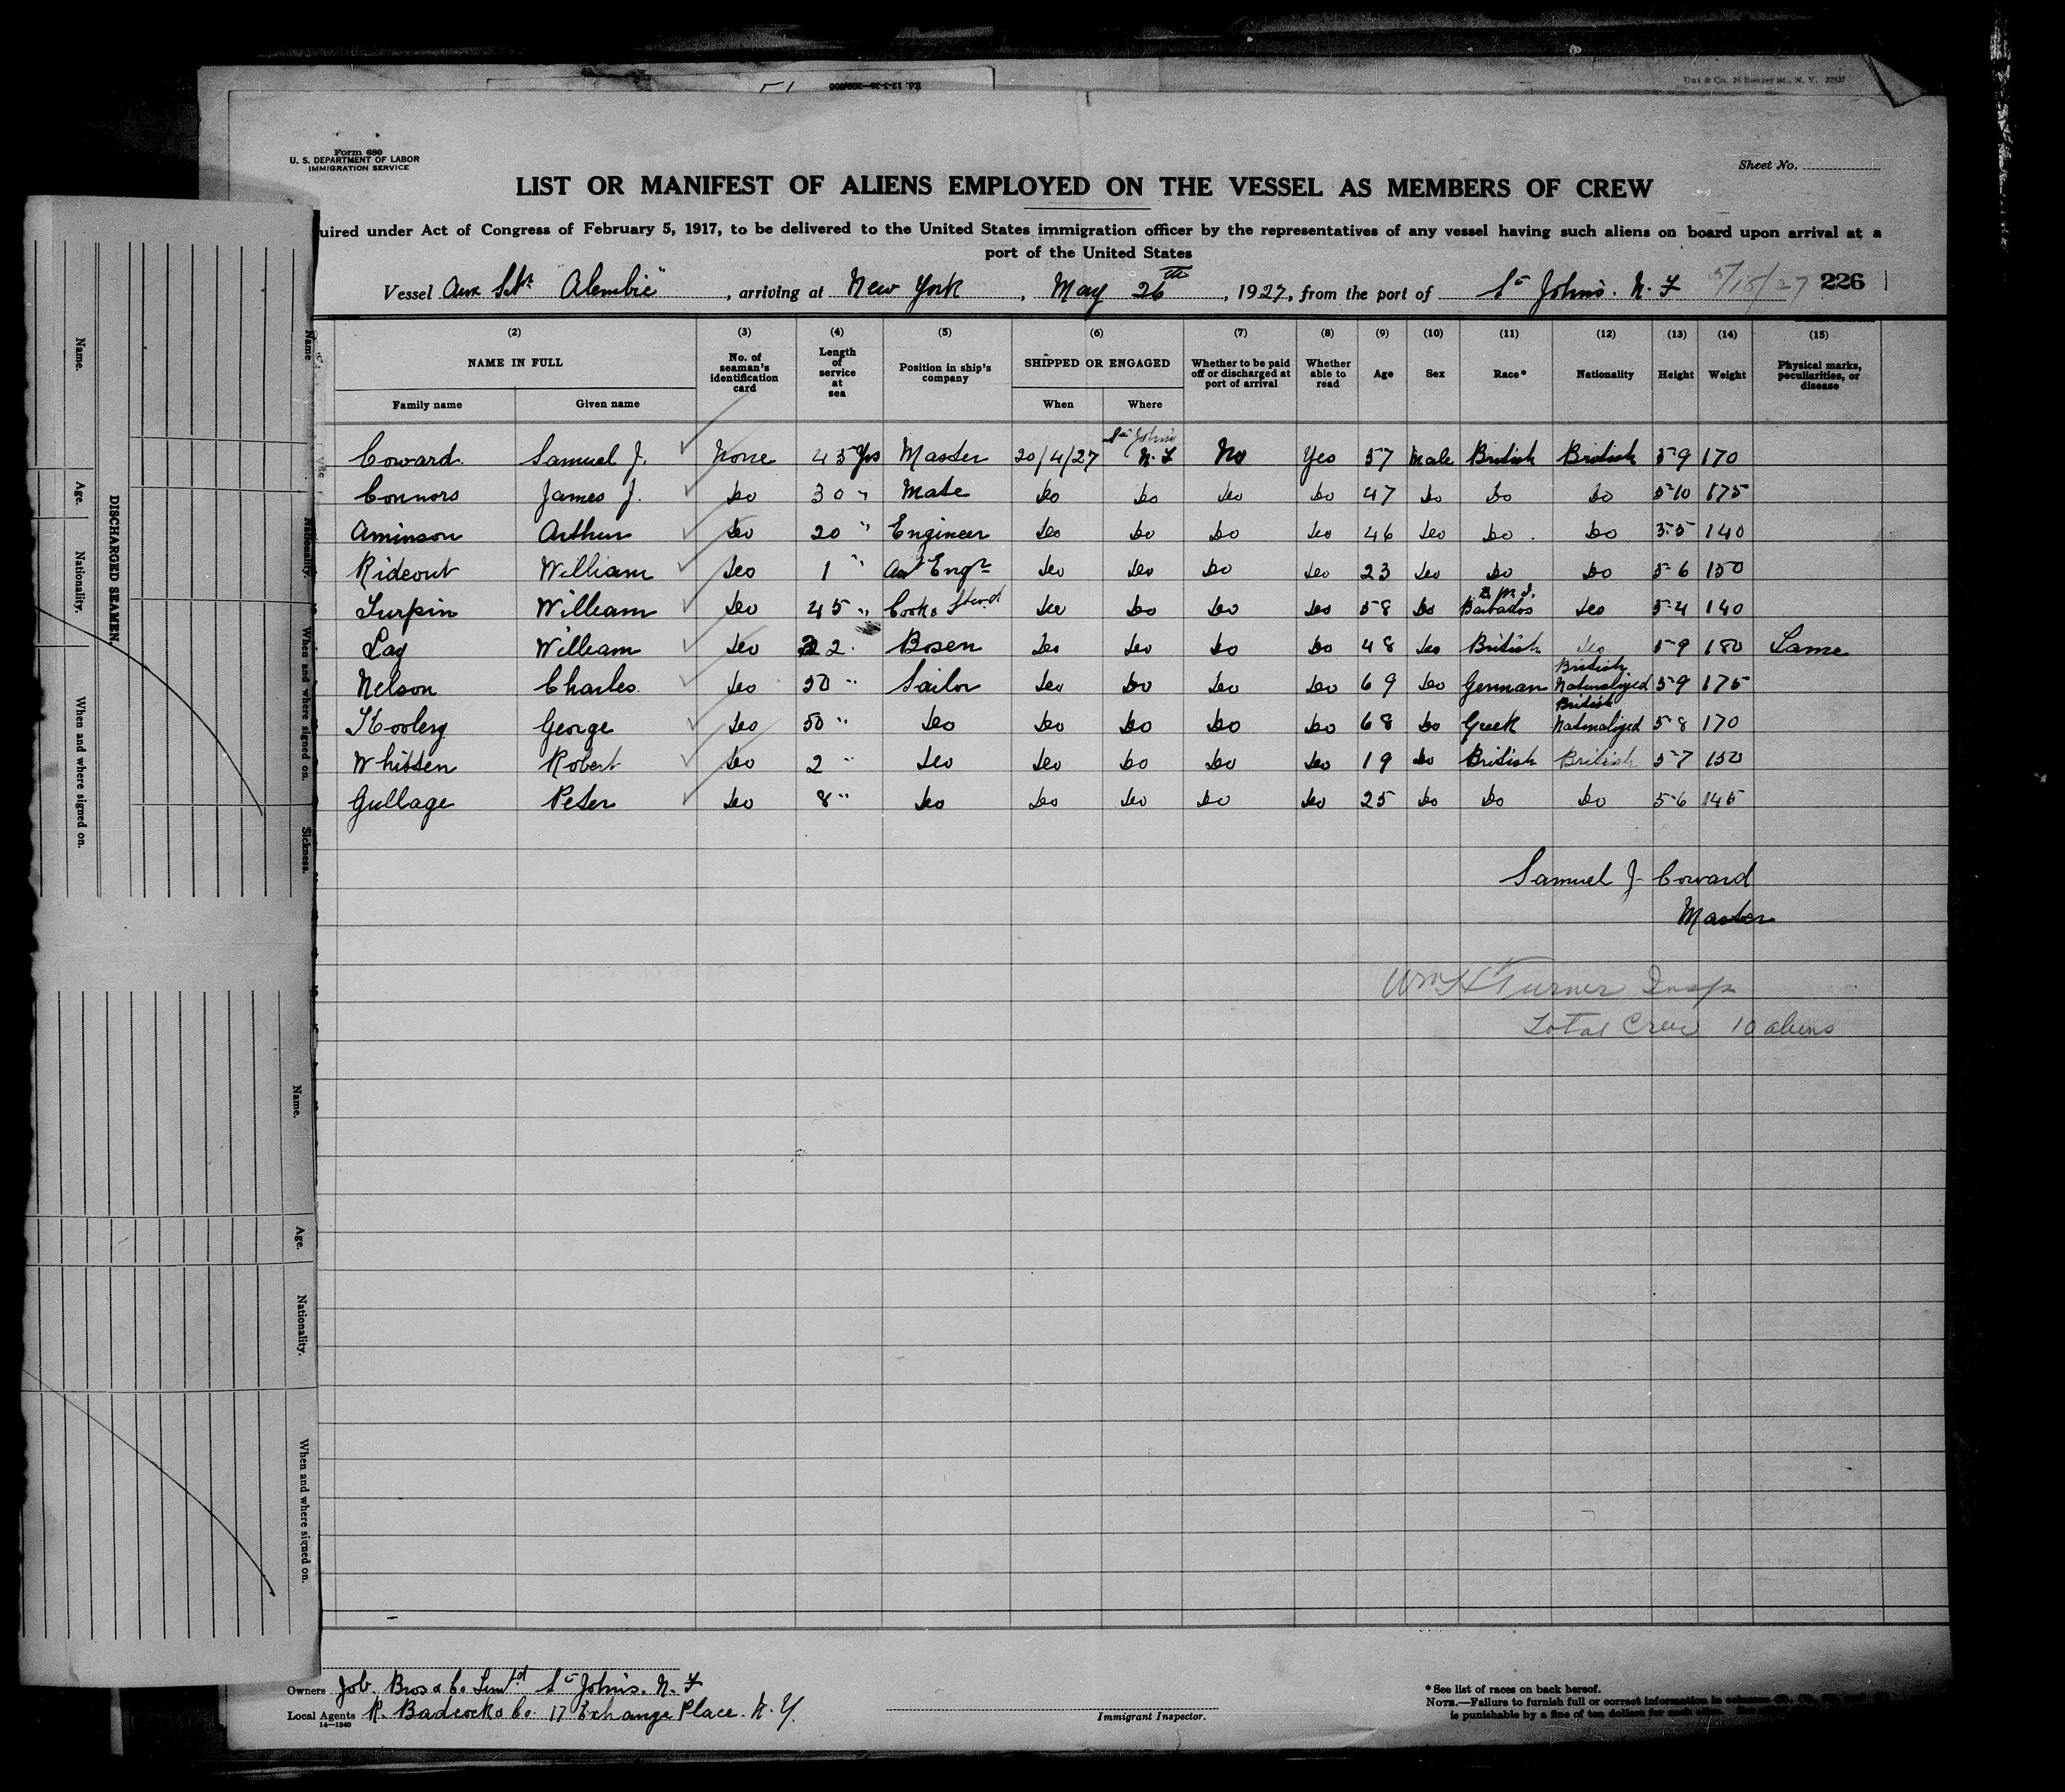 Form 680
U. S. DEPARTMENT OF LABOR
IMMIGRATION SERVICE
Sheet No.
LIST OR MANIFEST OF ALIENS EMPLOYED ON THE VESSEL AS MEMBERS OF CREW
uired under Act of Congress of February 5, 1917, to be delivered to the United States immigration officer by the representatives of any vessel having such aliens on board upon arrival at a
port of the United States
Vessel Aux "Alembic", arriving at New York, May 26th, 1927, from the port of St Johns. N. F 5/18/27 226
(2) (3) (4) (5) (6) (7) (8) (9) (10) (11) (12) (13) (14) (15)
NAME IN FULL No. of seaman's identification card Length of service at sea Position in ship's company SHIPPED OR ENGAGED Whether to be paid off or discharged at port of arrival Whether able to read Age Sex Race* Nationality Height Weight Physical marks, peculiarities, or disease
Family name Given name When Where
Coward Samuel J. None 45 Yrs Master 20/4/27 St Johns N. F No Yes 57 Male British British 5-9 170
Connors James J. do 30 " Mate do do do do 47 do do do 5-10 175
Aminson Arthur do 20 " Engineer do do do do 46 do do do 5-5 140
Rideout William do 1 " Engr do do do do 23 do do do 5-6 150
Turpin William do 45 " Cook & Stew'd do do do do 58 do Barbados do 5-4 140
Lay William do 22 Bosen do do do do 48 do British do 5-9 180
Nelson Charles do 50 " Sailor do do do do 69 do German British Naturalized 5-9 175
George do 50 " do do do do do 68 do Greek British Naturalized 5-8 170
Whitten Robert do 2 " do do do do do 19 do British British 5-7 150
Gullage Peter do 8 " do do do do do 25 do do do 5-6 145
Samuel J Coward
Master
Wm H Turner Insp
Total Crew 10 aliens
Owners Job. Bros & Co. St Johns. N. F
Local Agents R. Badcock & Co. 17 Exchange Place. N. Y.
14—1240
Immigrant Inspector.
* See list of races on back hereof.
NOTE.—Failure to furnish full or correct information in columns
is punishable by a fine of ten dollars for each alien.
DISCHARGED SEAMEN
Name.
Age.
Nationality.
When and where signed on.
Name
Nationality.
When and where signed on.
Sickness.
Name.
Age.
Nationality.
When and where signed on.